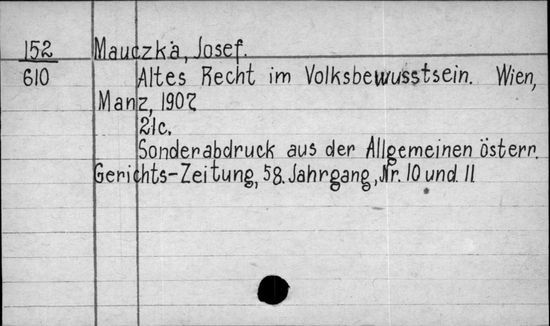 152 Mauczka, Josef.
610 Altes Recht im Volksbewusstsein. Wien,
Manz, 1907
21c.
Sonderabdruck aus der Allgemeinen österr.
Gerichts-Zeitung, 58. Jahrgang, Nr. 10 und 11